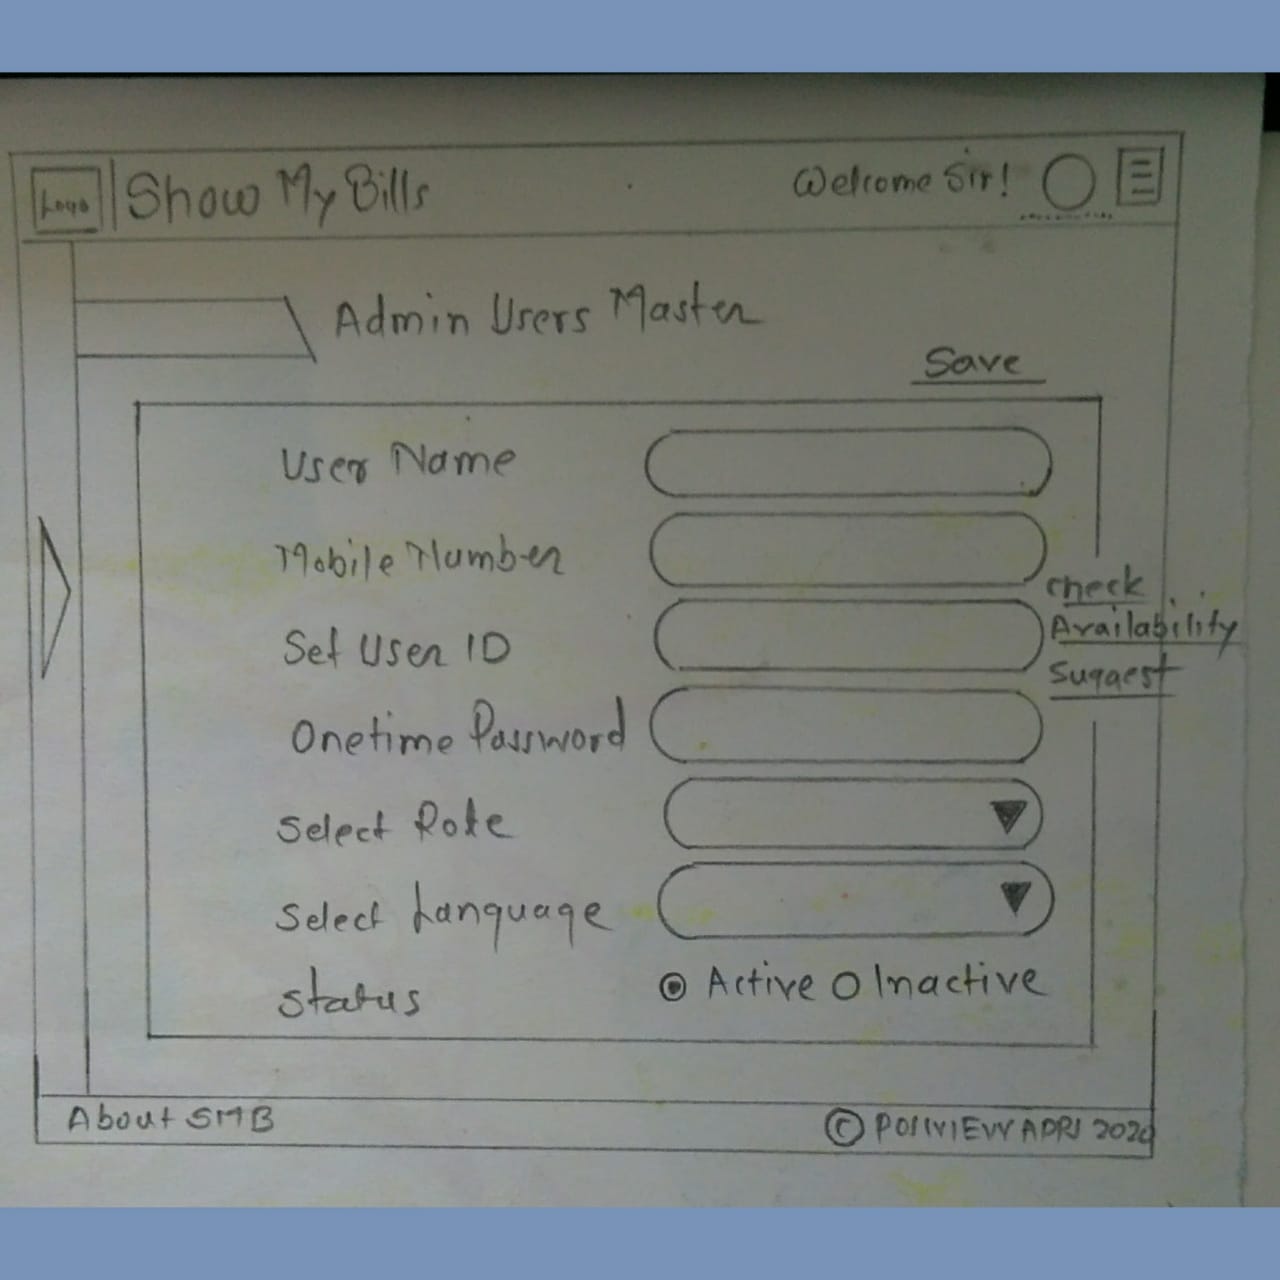 Logo
Show My Bills
Welcome Sir!
Admin Users Master
Save
User Name
Mobile Number
check
Availability
Set User ID
Suggest
Onetime Password
Select Role
Select Language
Status
Active
Inactive
About SMB
©